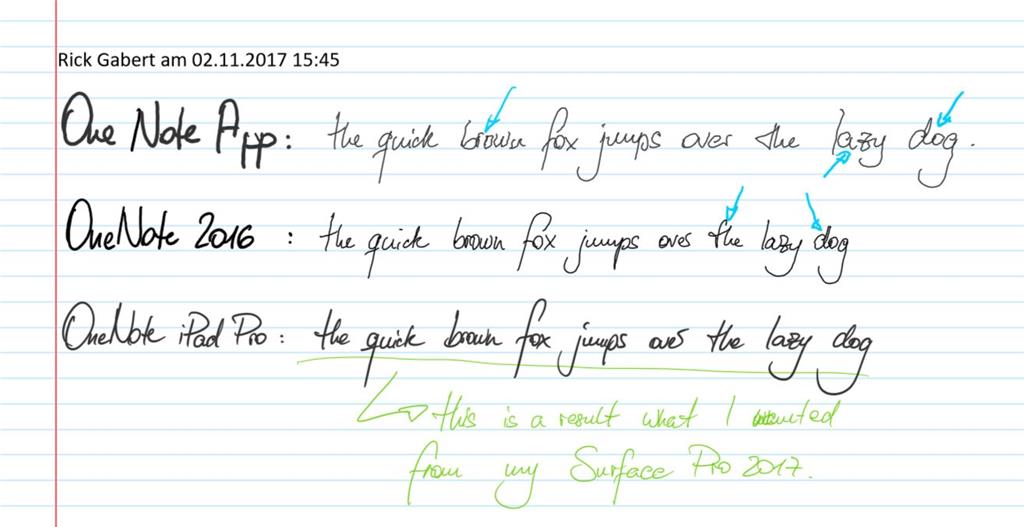 Rick Gabert am 02.11.2017 15:45
One Note App: the quick brown fox jumps over the lazy dog.
OneNote 2016 : the quick brown fox jumps over the lazy dog
OneNote iPad Pro: the quick brown fox jumps over the lazy dog
this is a result what I wanted
from my Surface Pro 2017.